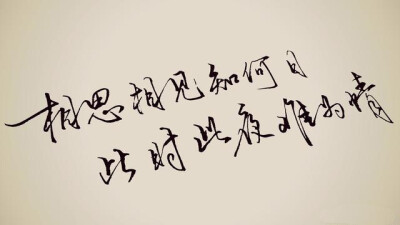 相思相见知何日
此时此夜难为情